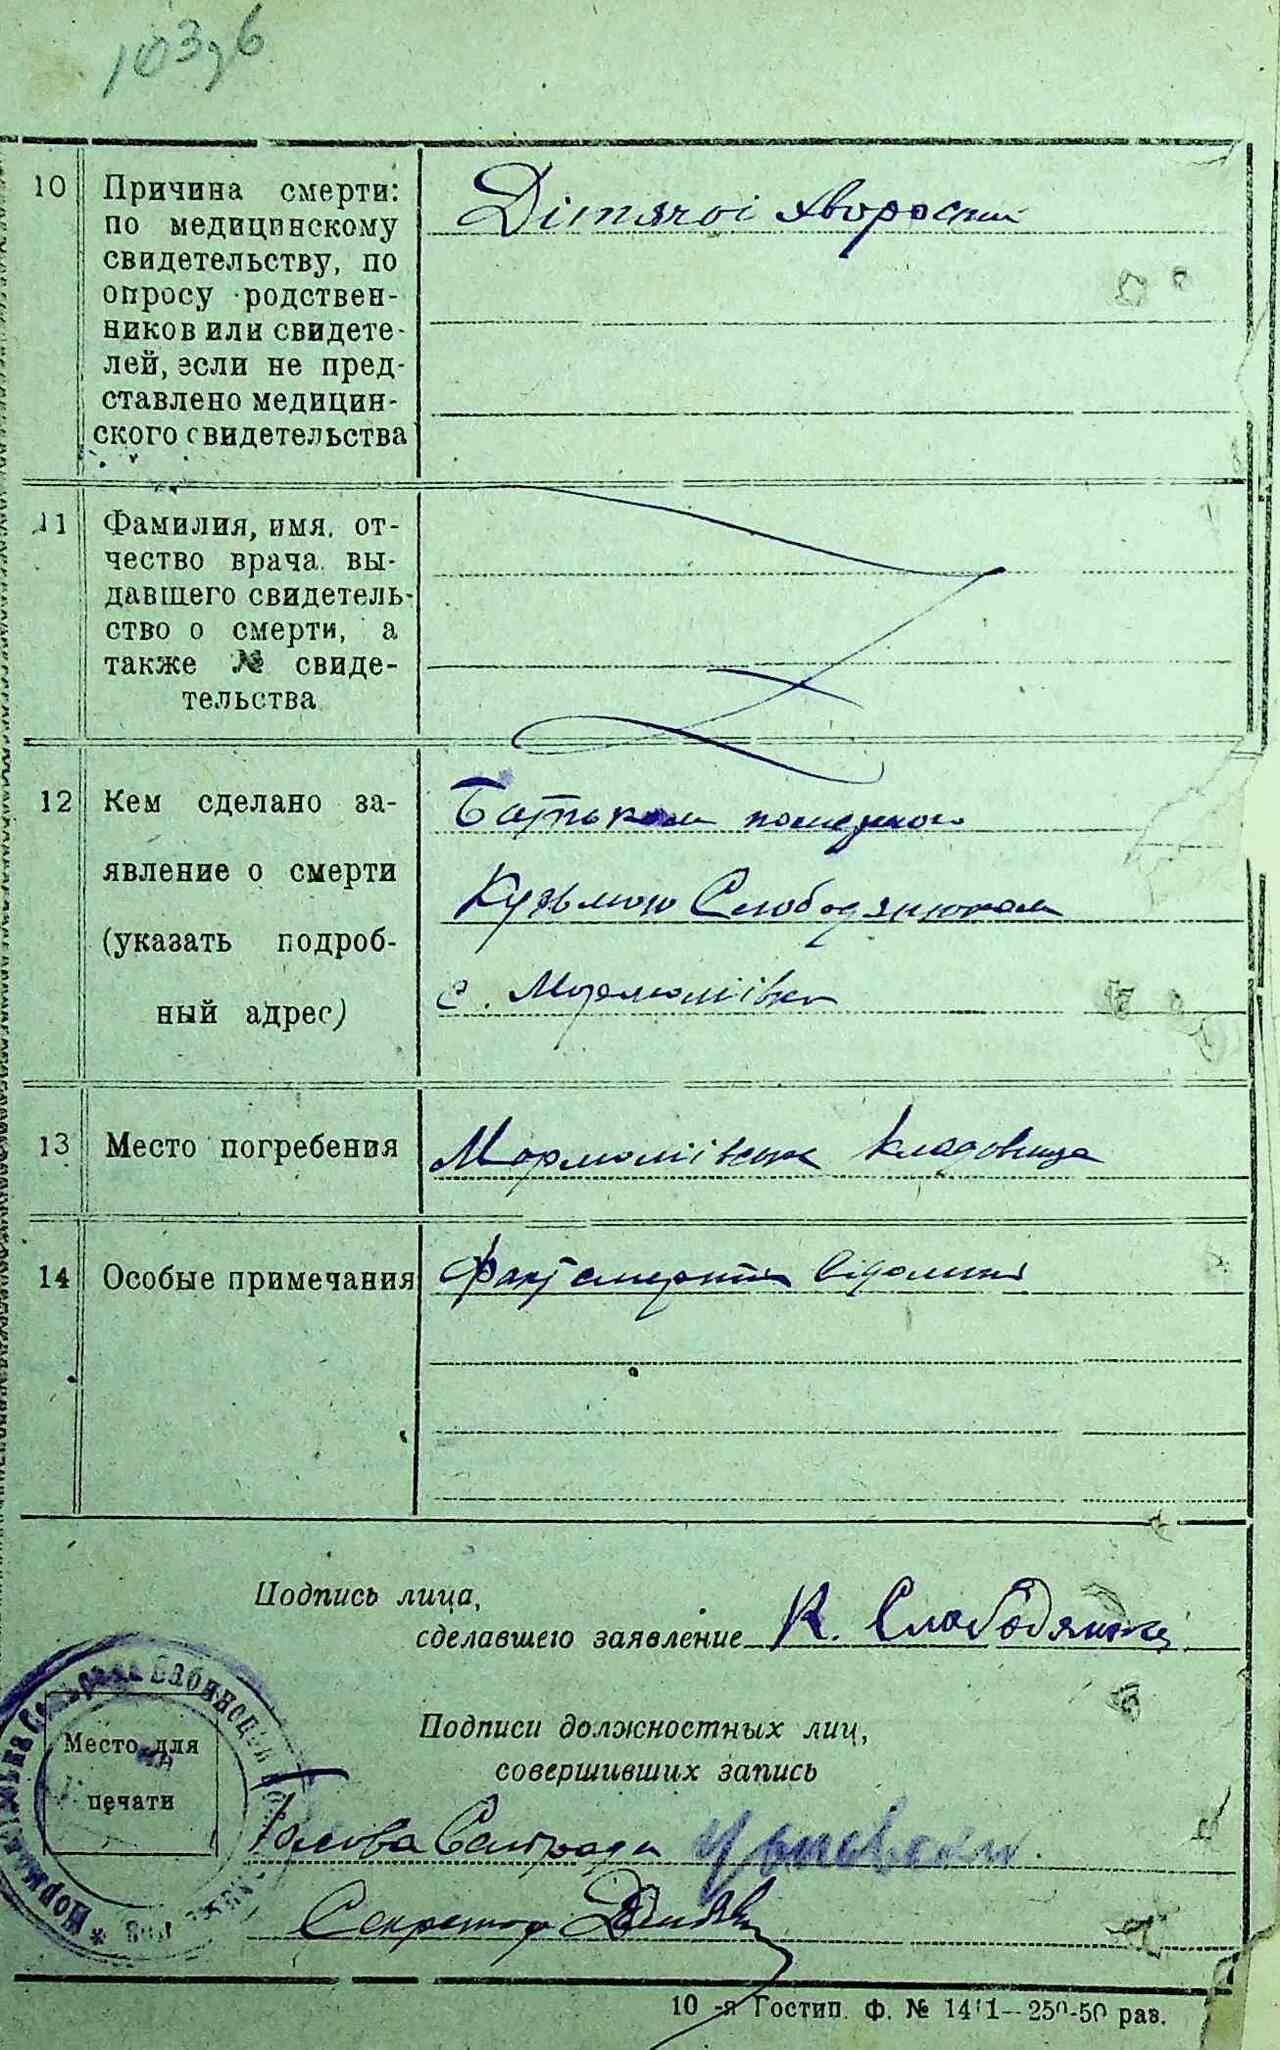 10
Причина смерти:
по медицинскому
свидетельству, по
опросу родствен-
ников или свидете-
лей, если не пред-
ставлено медицин-
ского свидетельства
Дітячої хворости
11
Фамилия, имя, от-
чество врача, вы-
давшего свидетель-
ство о смерти, а
также № свиде-
тельства
12
Кем сделано за-
явление о смерти
(указать подроб-
ный адрес)
Батьком
Кузьмою Слободянюком
с.
13
Место погребения
кладовища
14
Особые примечания
Факт смерти
Подпись лица,
сделавшего заявление
К. Слободянюк
Подписи должностных лиц,
совершивших запись
Место для
печати
Голова Сельради
Секретар
10 -я Гостип. Ф. №